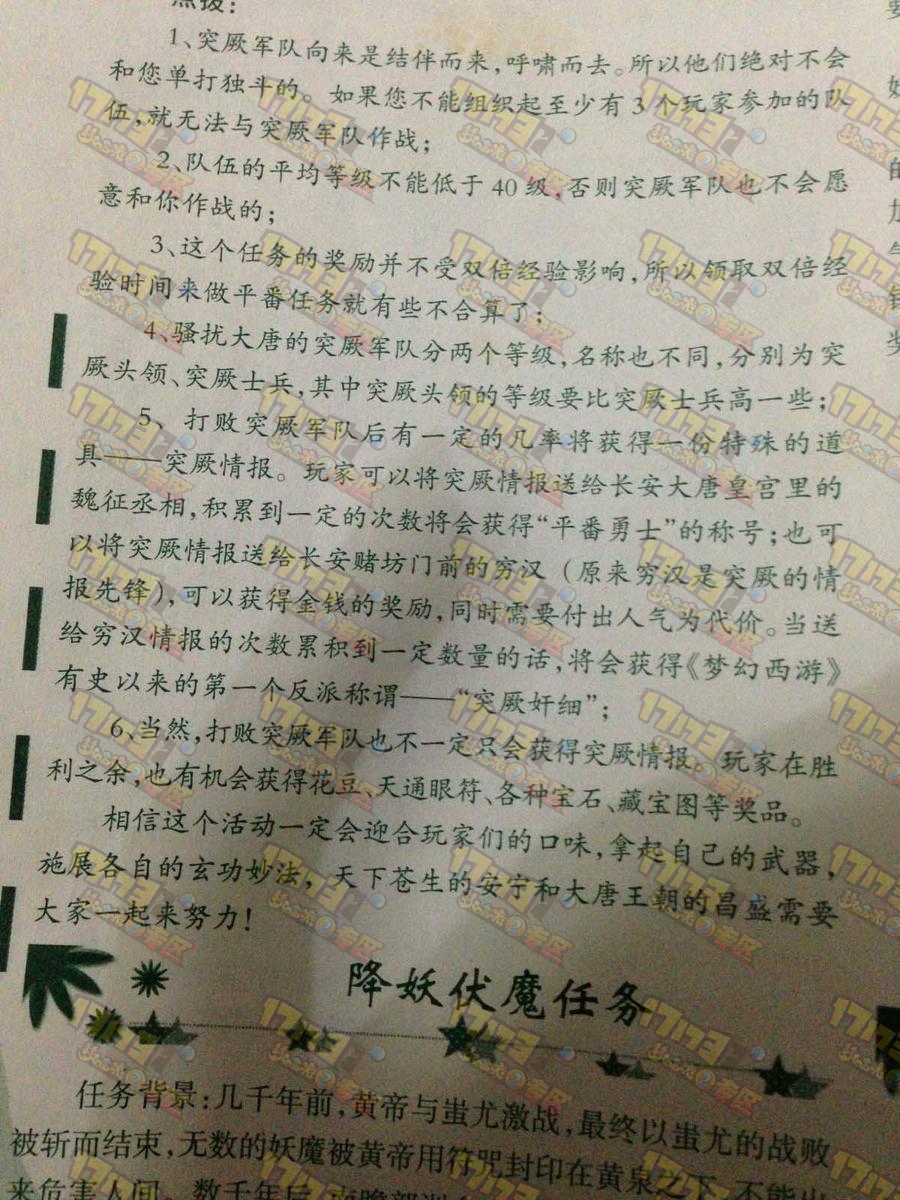 点拨：
1、突厥军队向来是结伴而来，呼啸而去。所以他们绝对不会
和您单打独斗的。如果您不能组织起至少有3个玩家参加的队
伍，就无法与突厥军队作战；
2、队伍的平均等级不能低于40级，否则突厥军队也不会愿
意和你作战的；
3、这个任务的奖励并不受双倍经验影响，所以领取双倍经
验时间来做平番任务就有些不合算了；
4、骚扰大唐的突厥军队分两个等级，名称也不同，分别为突
厥头领、突厥士兵，其中突厥头领的等级要比突厥士兵高一些；
5、打败突厥军队后有一定的几率将获得一份特殊的道
具——突厥情报。玩家可以将突厥情报送给长安大唐皇宫里的
魏征丞相，积累到一定的次数将会获得“平番勇士”的称号；也可
以将突厥情报送给长安赌坊门前的穷汉（原来穷汉是突厥的情
报先锋），可以获得金钱的奖励，同时需要付出人气为代价。当送
给穷汉情报的次数累积到一定数量的话，将会获得《梦幻西游》
有史以来的第一个反派称谓——“突厥奸细”；
6、当然，打败突厥军队也不一定只会获得突厥情报。玩家在胜
利之余，也有机会获得花豆、天通眼符、各种宝石、藏宝图等奖品。
相信这个活动一定会迎合玩家们的口味，拿起自己的武器，
施展各自的玄功妙法，天下苍生的安宁和大唐王朝的昌盛需要
大家一起来努力！
降妖伏魔任务
任务背景：几千年前，黄帝与蚩尤激战，最终以蚩尤的战败
被斩而结束，无数的妖魔被黄帝用符咒封印在黄泉之下，不能出
来危害人间。数千年后，南瞻部洲